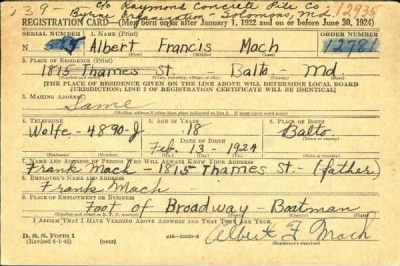 139- c/o Raymond Concrete Pile Co
Solomons, Md. 12935
REGISTRATION CARD—(Men born on or after January 1, 1922 and on or before June 30, 1924)
SERIAL NUMBER 1. NAME (Print) ORDER NUMBER
Albert Francis Mach 12781
(First) (Middle) (Last)
2. PLACE OF RESIDENCE (Print)
1815 Thames St. Balto Md
[THE PLACE OF RESIDENCE GIVEN ON THE LINE ABOVE WILL DETERMINE LOCAL BOARD
JURISDICTION; LINE 2 OF REGISTRATION CERTIFICATE WILL BE IDENTICAL]
3. MAILING ADDRESS
Same
[Mailing address if other than place indicated on line 2. If same insert word same]
4. TELEPHONE 5. AGE IN YEARS 6. PLACE OF BIRTH
Wolfe-4890-J 18 Balto.
DATE OF BIRTH
Feb. 13-1924
7. NAME AND ADDRESS OF PERSON WHO WILL ALWAYS KNOW YOUR ADDRESS
Frank Mach-1815 Thames St-(father)
8. EMPLOYER'S NAME AND ADDRESS
Frank Mach
9. PLACE OF EMPLOYMENT OR BUSINESS
Foot of Broadway-Boatman
I AFFIRM THAT I HAVE VERIFIED ABOVE ANSWERS AND THAT THEY ARE TRUE.
D. S. S. Form 1
(Revised 6-1-42)
Albert F Mach